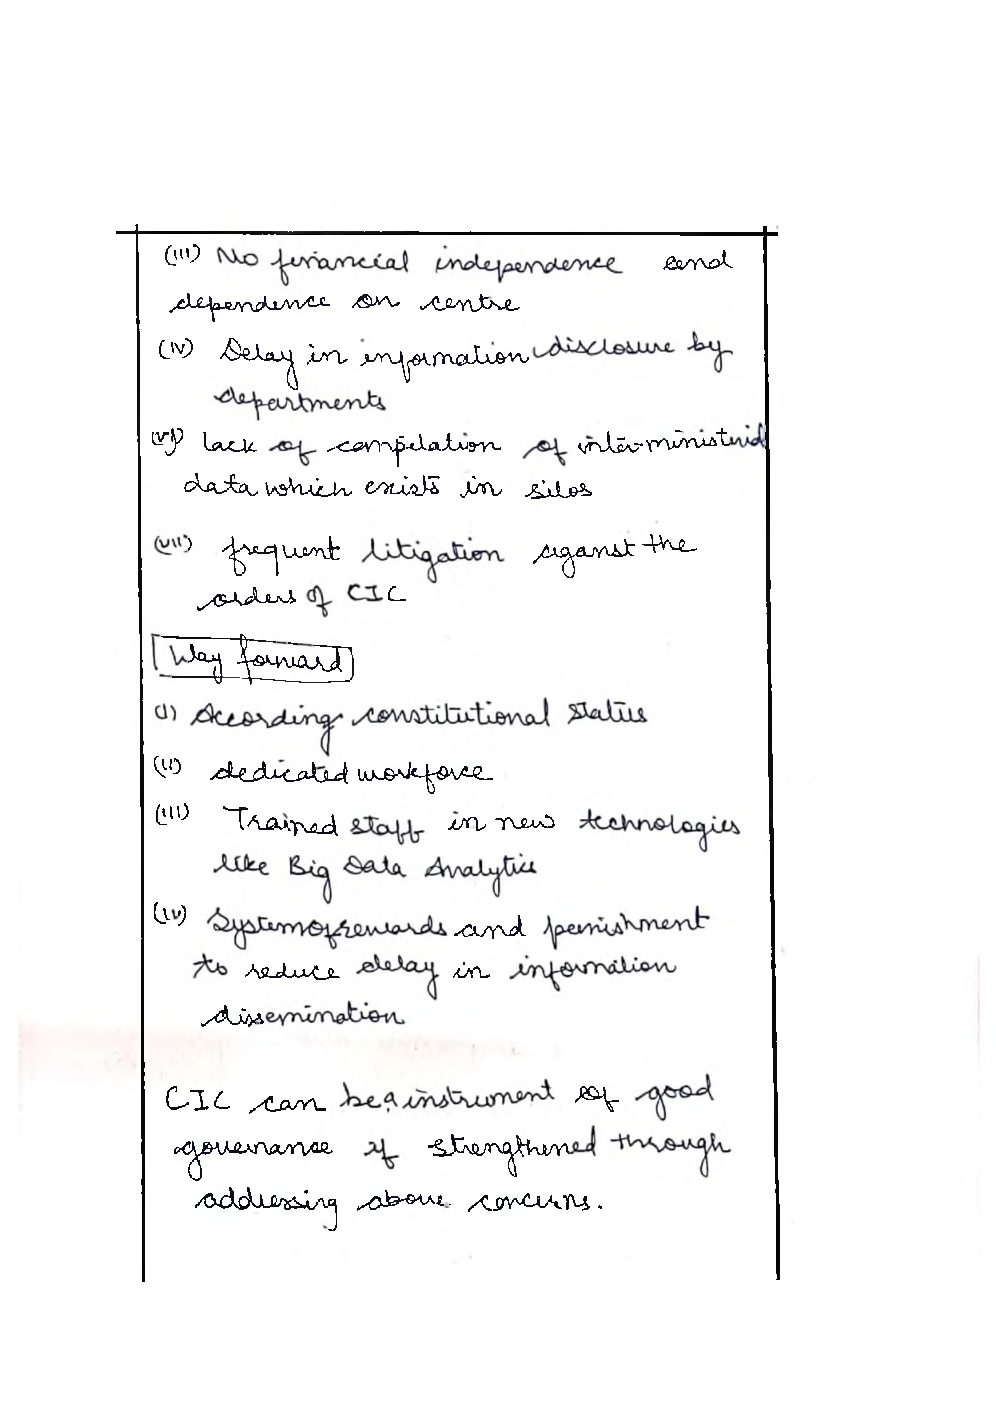 (iii) No financial independence and
dependence on centre
(iv) Delay in information disclosure by
departments
(vi) lack of compilation of inter-ministerial
data which exists in silos
(vii) frequent litigation aganst the
orders of CIC
Way forward
(i) According constitutional status
(ii) dedicated workforce
(iii) Trained staff in new technologies
like Big Data Analytics
(iv) System of rewards and punishment
to reduce delay in information
dissemination
CIC can be a instrument of good
governance if strengthened through
addressing above concerns.